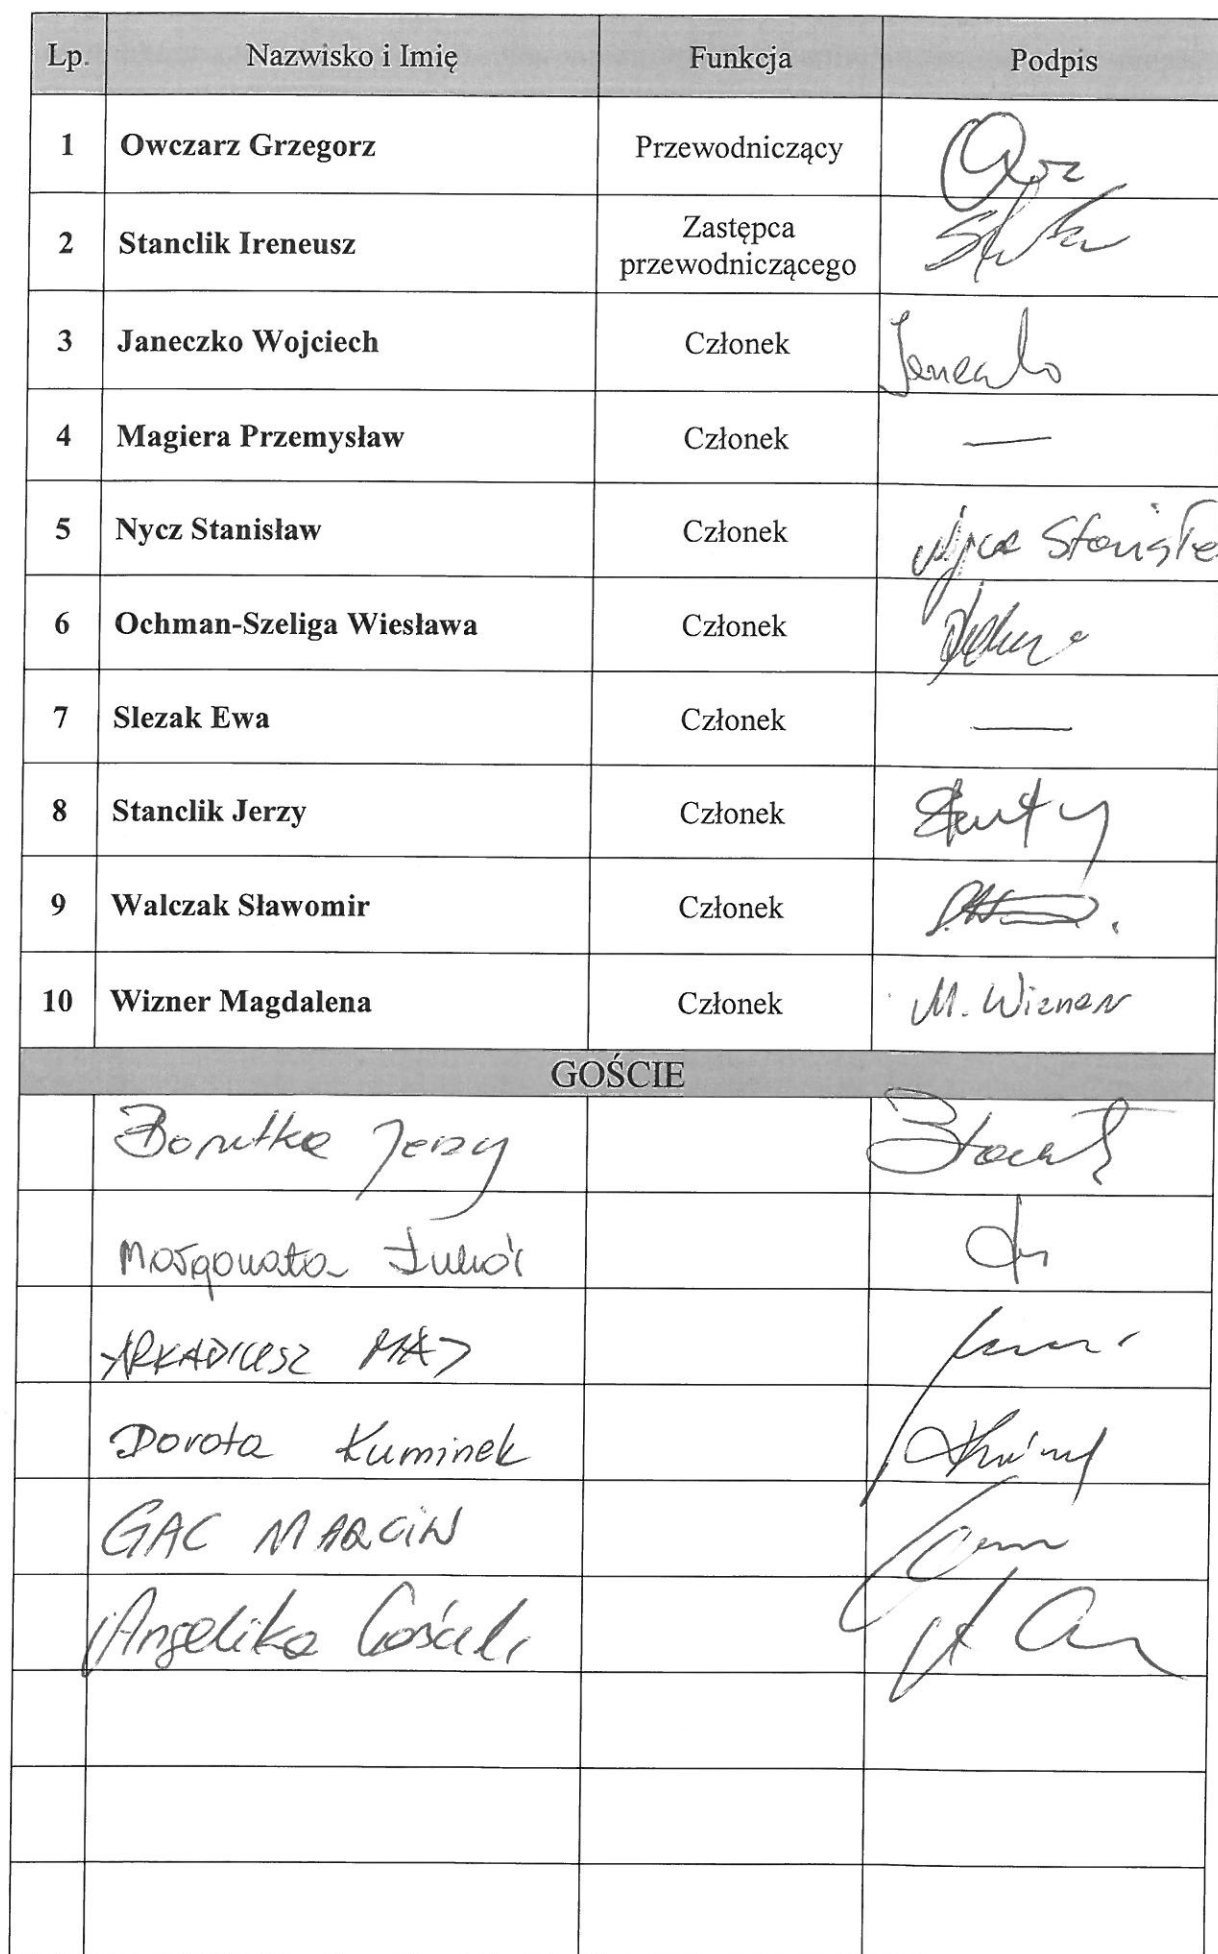 Lp. Nazwisko i Imię Funkcja Podpis
1 Owczarz Grzegorz Przewodniczący
2 Stanclik Ireneusz Zastępca
przewodniczącego
3 Janeczko Wojciech Członek
4 Magiera Przemysław Członek —
5 Nycz Stanisław Członek
6 Ochman-Szeliga Wiesława Członek
7 Slezak Ewa Członek —
8 Stanclik Jerzy Członek
9 Walczak Sławomir Członek
10 Wizner Magdalena Członek M. Wizner
GOŚCIE
Borutka Jerzy
Małgorzata
ARKADIUSZ MAJ
Dorota Kuminek
GAC MARCIN
Angelika